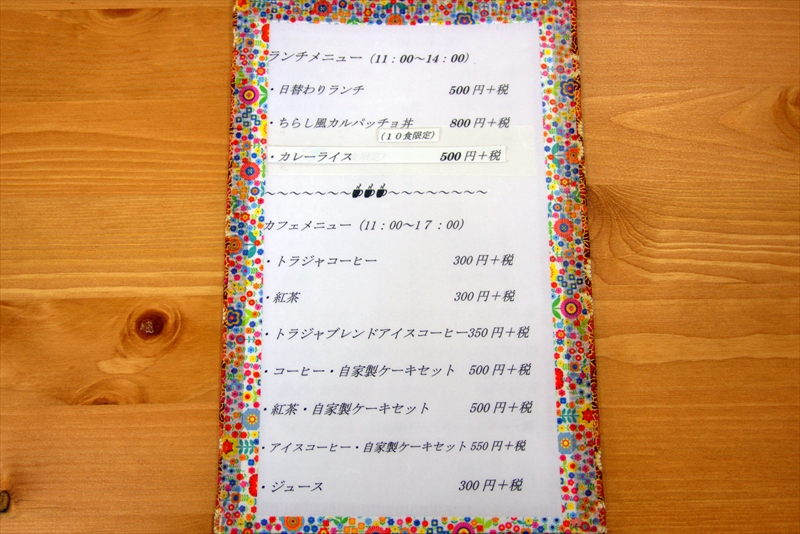 ランチメニュー（11：00～14：00）
・日替わりランチ 500円＋税
・ちらし風カルパッチョ丼 800円＋税
（１０食限定）
・カレーライス 500円＋税
カフェメニュー（11：00～1７：00）
・トラジャコーヒー 300円＋税
・紅茶 300円＋税
・トラジャブレンドアイスコーヒー350円＋税
・コーヒー・自家製ケーキセット 500円＋税
・紅茶・自家製ケーキセット 500円＋税
・アイスコーヒー・自家製ケーキセット 550円＋税
・ジュース 300円＋税